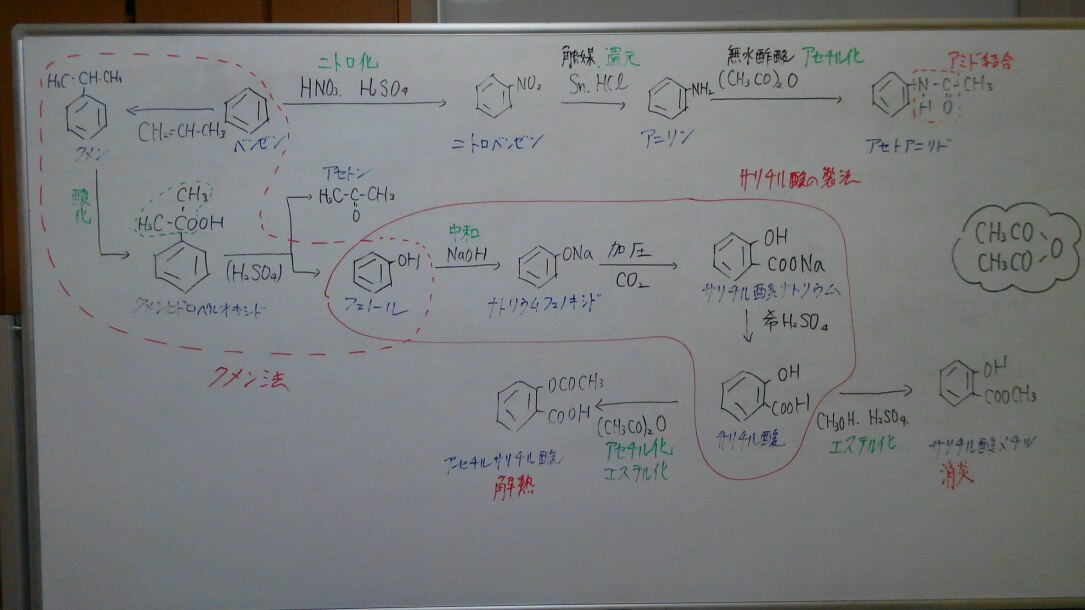 H₃C-CH-CH₃
クメン
CH₂=CH-CH₃
ベンゼン
ニトロ化
HNO₃. H₂SO₄
NO₂
ニトロベンゼン
触媒 還元
Sn. HCl
NH₂
アニリン
無水酢酸 アセチル化
(CH₃CO)₂O
アミド結合
N-C-CH₃
H O
アセトアニリド
酸化
CH₃
H₃C-COOH
クメンヒドロペルオキシド
(H₂SO₄)
アセトン
H₃C-C-CH₃
O
OH
フェノール
クメン法
中和
NaOH
ONa
ナトリウムフェノキシド
加圧
CO₂
サリチル酸の製法
OH
COONa
サリチル酸ナトリウム
希H₂SO₄
OH
COOH
サリチル酸
CH₃CO
O
CH₃CO
OCOCH₃
COOH
アセチルサリチル酸
解熱
(CH₃CO)₂O
アセチル化
エステル化
CH₃OH. H₂SO₄
エステル化
OH
COOCH₃
サリチル酸メチル
消炎